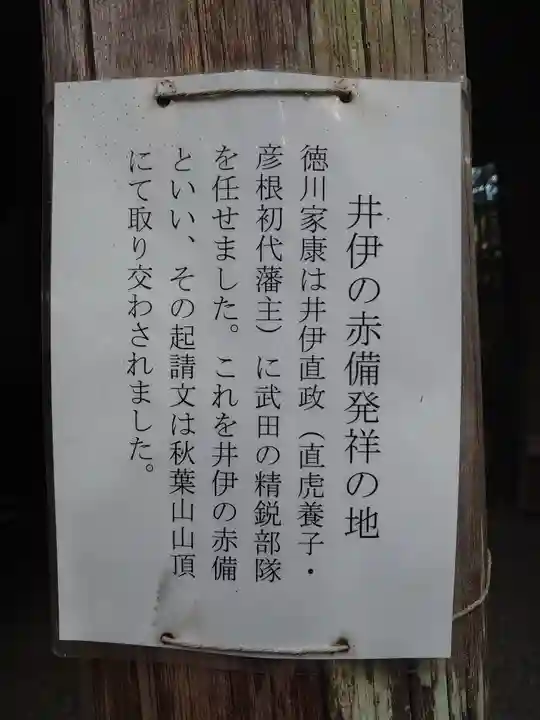 井伊の赤備発祥の地
徳川家康は井伊直政（直虎養子・
彦根初代藩主）に武田の精鋭部隊
を任せました。これを井伊の赤備
といい、その起請文は秋葉山山頂
にて取り交わされました。